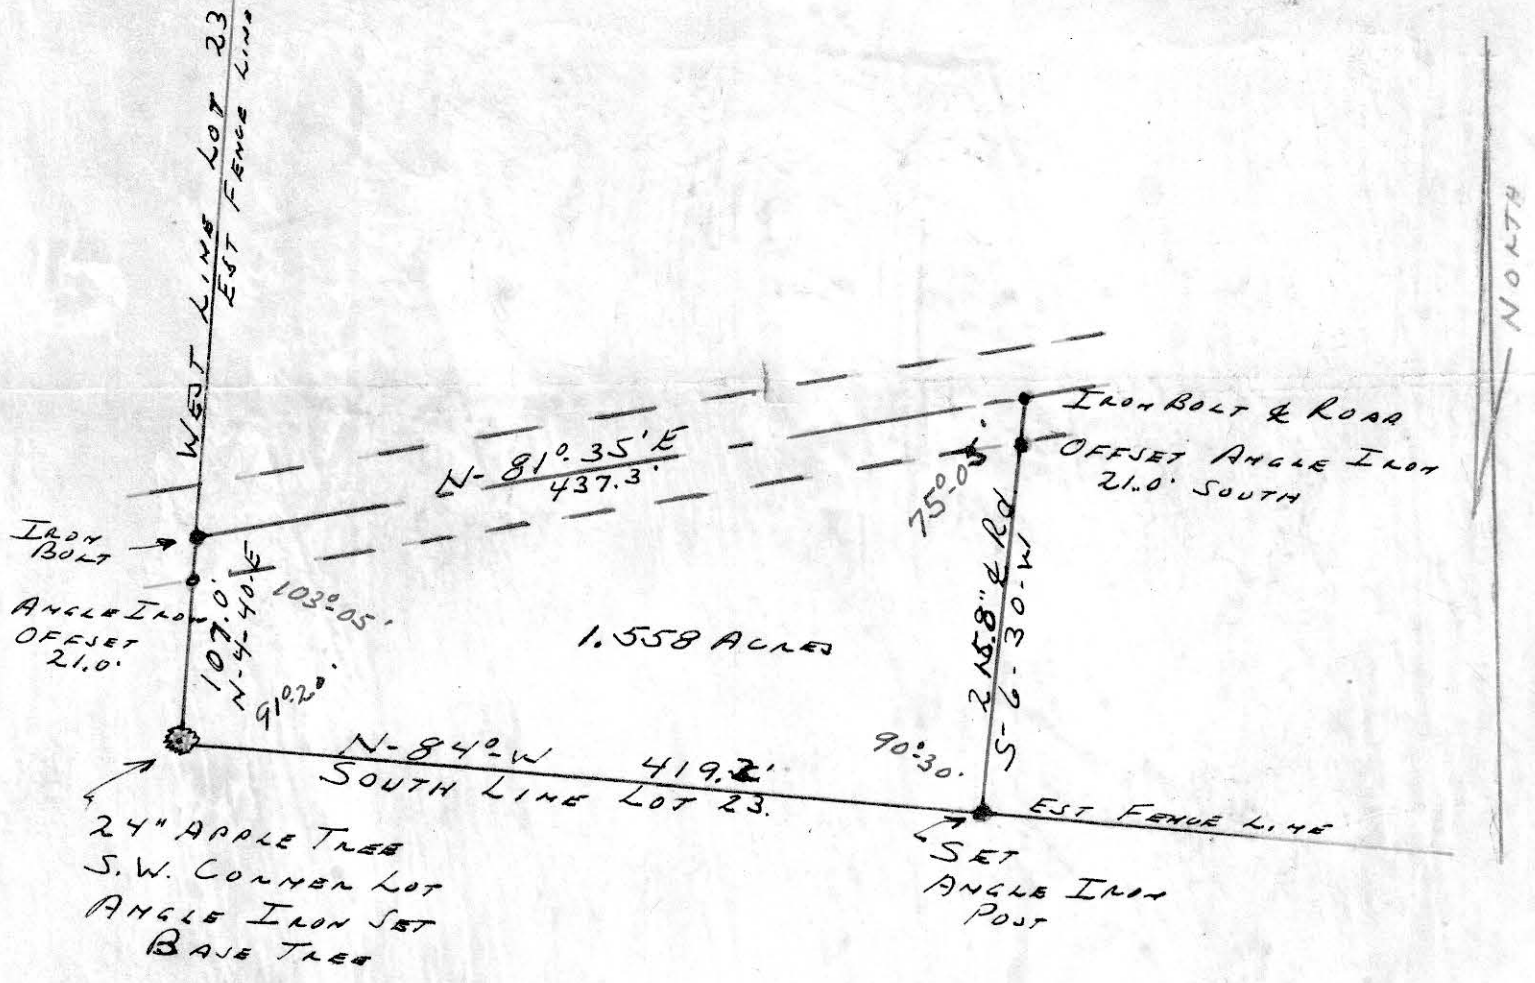 WEST LINE LOT 23
EST FENCE LINE
NORTH
IRON BOLT ℄ ROAD
OFFSET ANGLE IRON
21.0' SOUTH
N-81°.35'E
437.3'
75°-05'
IRON
BOLT
ANGLE IRON
OFFSET
21.0'
107.0'
N-4-40-E
103°-05'
91°.20'
1.558 ACRES
215.8" ℄ Rd
S-6-30-W
90°-30'
N-84°-W 419.2'
SOUTH LINE LOT 23.
EST FENCE LINE
24" APPLE TREE
S.W. CORNER LOT
ANGLE IRON SET
BASE TREE
SET
ANGLE IRON
POST